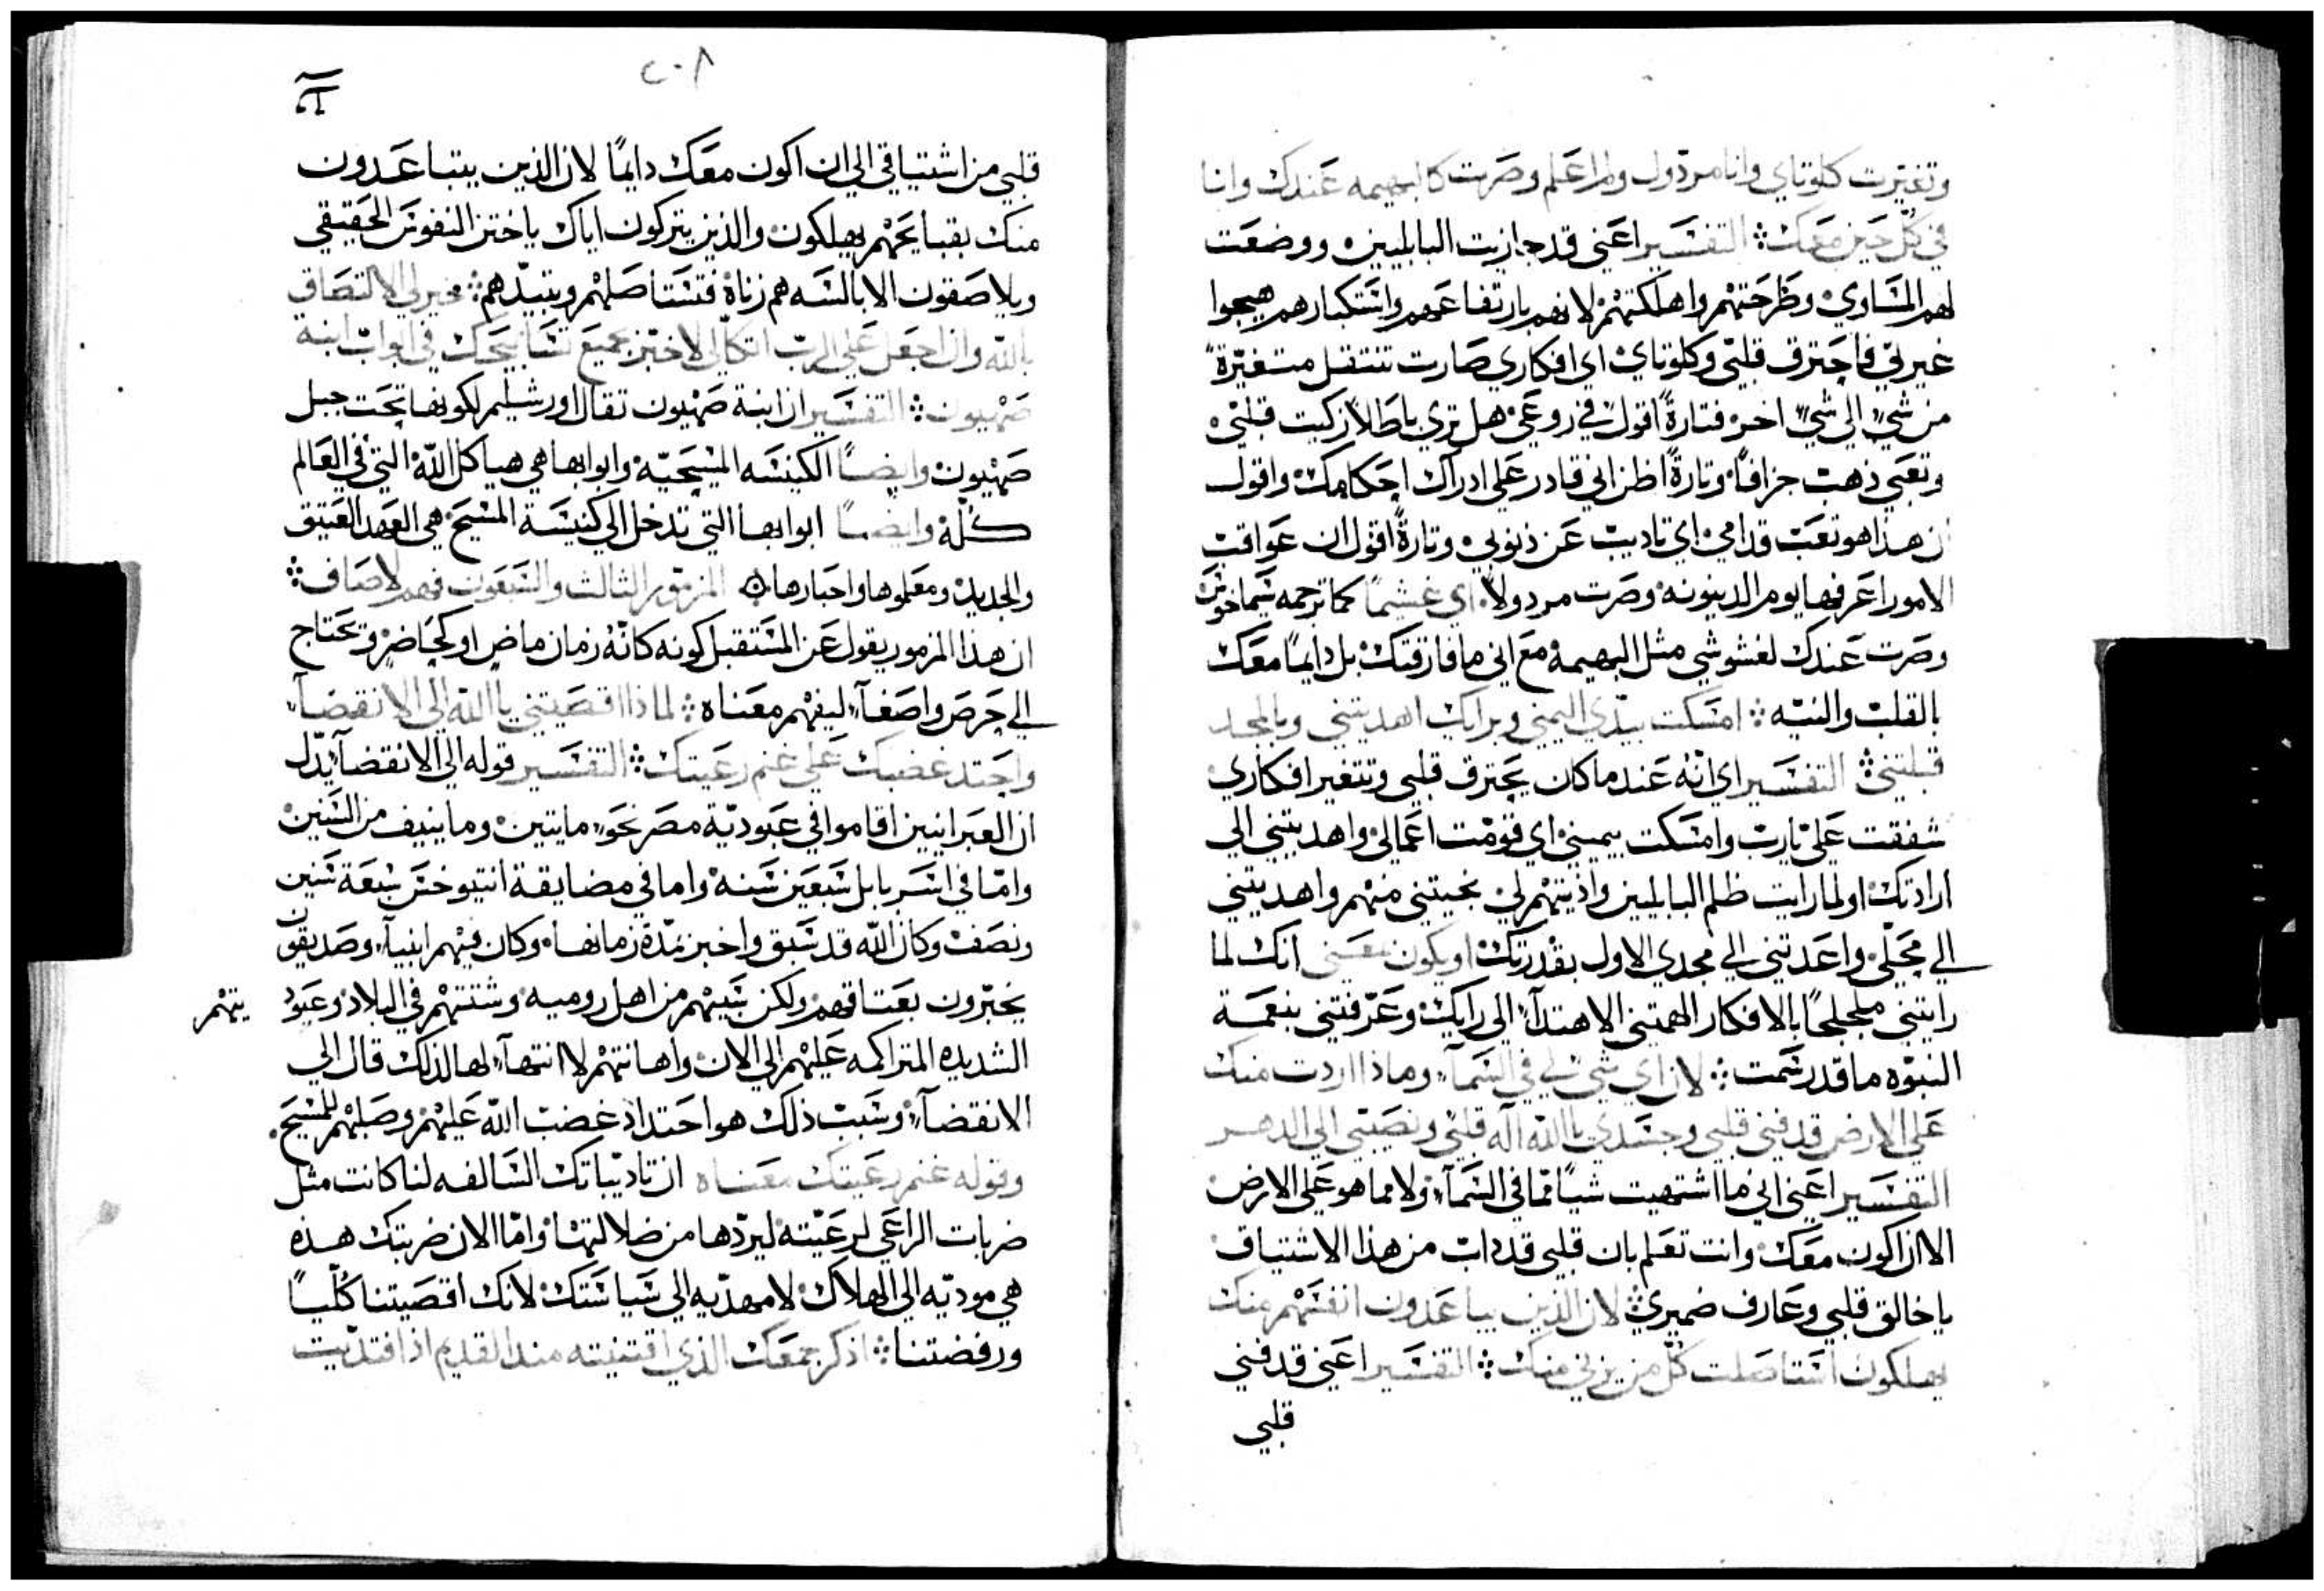 وتغيّرت كلوتاي وانا مردول ولم اعلم وصرت كالبهيمه عندك وانا
في كل حين معك ؞ التفسير اعني قد جازيت البابليين ووضعت
لهم المساوي وطرحتهم واهلكتهم لانهم بارتفاعهم واستكبارهم هيجوا
غيرتي فاحترق قلبي وكلوتاي اي افكاري صارت تنتقل متغيّرةً
من شيٍ الى شيٍ اخر فتارةً اقول في روعي هل تري باطلاً زكيت قلبي
وتعبي ذهب جزافاً وتارةً اظن اني قادر على ادراك احكامك واقول
ان هذا هو تعب قدامي اي تاديب عن ذنوبي وتارةً اقول ان عواقب
الامور اعرفها يوم الدينونه وصرت مردولاً اي غشيماً كما ترجمه سيماخوس
وصرت عندك لغشوشي مثل البهيمه مع اني ما فارقتك بل دايماً معك
بالقلب والنيّه ؞ امسكت بيدي اليمني وبرايك اهديتني وبالمجد
قبلتني ؞ التفسير اي انّه عندما كان يحترق قلبي وتتغير افكاري
شفقت عليّ يارب وامسكت بيميني اي قومّت اعمالي واهديتني الي
ارادتك او لما رايت ظلم البابليين واذيتهم لي نجيتني منهم واهديتني
الي محلّي واعدتني الي مجدي الاول بقدرتك او يكون معني انك لما
رايتني ملجلجاً بالافكار الهمتني الاهتدآء الى رايك وعرّفتني بنعمة
النبوّه ما قد رسمت ؞ لان اي شي لي في السمآء وماذا اردت منك
على الارض قد فني قلبي وجسدي يا الله اله قلبي ونصيبي الي الدهر
التفسير اعني اني ما اشتهيت شياً ممّا في السمآء ولا مما هو على الارض
الا ان اكون معك وانت تعلم بان قلبي قد داب من هذا الاشتياق
يا خالق قلبي وعارف ضميري ؞ لان الذين يباعدون انفسهم منك
يهلكون استاصلت كل من يزني منك ؞ التفسير اعني قد فني
قلبي
٢٠٨
قلبي من اشتياقي الي ان اكون معك دايماً لان الذين يتباعدون
منك بقبايحهم يهلكون والذين يتركون اياك يا ختن النفوس الحقيقي
ويلاصقون الابالسه هم زناة فتستاصلهم وتبيدهم ؞ فخير لي الالتصاق
بالله وان اجعل على الرب اتكالي لاخبّر بجميع تسابيحك في ابواب ابنة
صهيون ؞ التفسير ان ابنة صهيون تقال اورشليم لكونها تحت جبل
صهيون وايضاً الكنيسه المسيحيّه وابوابها هي هياكل الله التي في العالم
كلّه وايضاً ابوابها التي تدخل الي كنيسة المسيح هي العهد العتيق
والجديد ومعلموها واحبارها ۞ المزمور الثالث والسبعون فهم لاصاف ؞
ان هذا المزمور يقول عن المستقبل كونه كانّه زمان ماضٍ او كحاضرٍ وتحتاج
الي حرص واصغآء ليفهم معناه ؞ لماذا اقصيتني يا الله الي الانقضآء
واحتد غضبك على غنم رعيتك ؞ التفسير قوله الي الانقضآء يدّل
ان العبرانيين اقاموا في عبوديّة مصر نحو مايتين وما ينيف من السنين
وامّا في اسر بابل سبعين سنه واما في مضايقة انتيوخس سبعة سنين
ونصف وكان الله قد سبق واخبر بمّدة زمانها وكان فيهم انبيآء وصديقون
يخبّرون بعتاقهم ولكن سبيهم من اهل روميه وشتتهم في البلاد وعبود
يتهم
الشديده المتراكمه عليهم الي الان واهانتهم لا انتهآء لها لذلك قال الي
الانقضآء وسبب ذلك هو احتداد غضب الله عليهم وصلبهم للمسيح
وقوله غنم رعيتك معناه ان تاديباتك السالفه لنا كانت مثل
ضربات الراعي لرعيّته ليردّها من ضلالتها وامّا الان ضربتك هذه
هي موديّه الي الهلاك لا مهديّه الي سياستك لانك اقصيتنا كلّياً
ورفضتنا ؞ اذكر جمعك الذي اقتنيته منذ القديم اذ افتديت